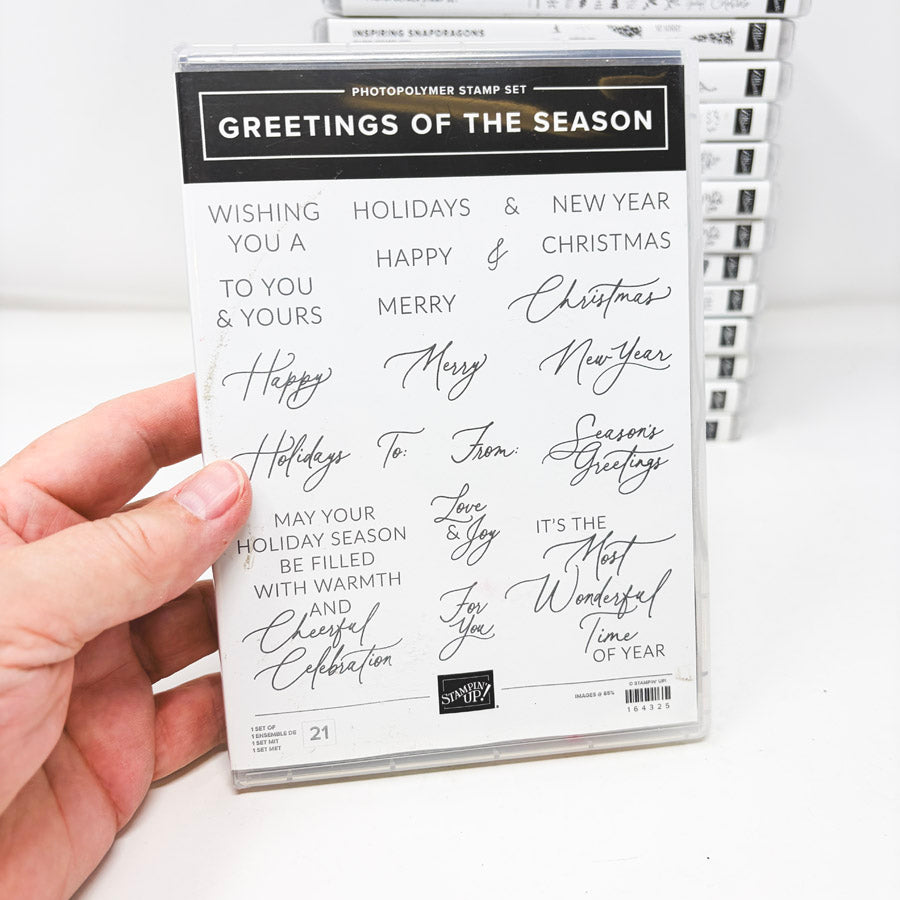 INSPIRING SNAPDRAGONS
PHOTOPOLYMER STAMP SET
GREETINGS OF THE SEASON
WISHING
YOU A
HOLIDAYS & NEW YEAR
HAPPY & CHRISTMAS
TO YOU
& YOURS
MERRY Christmas
Happy Merry New Year
Holidays To: From: Season's
Greetings
MAY YOUR
HOLIDAY SEASON
BE FILLED
WITH WARMTH
AND
Cheerful
Celebration
Love
& Joy
For
You
IT'S THE
Most
Wonderful
Time
OF YEAR
STAMPIN'
UP!
IMAGES @ 65%
© STAMPIN' UP!
164325
1 SET OF
1 ENSEMBLE DE
1 SET MIT
1 SET MET
21